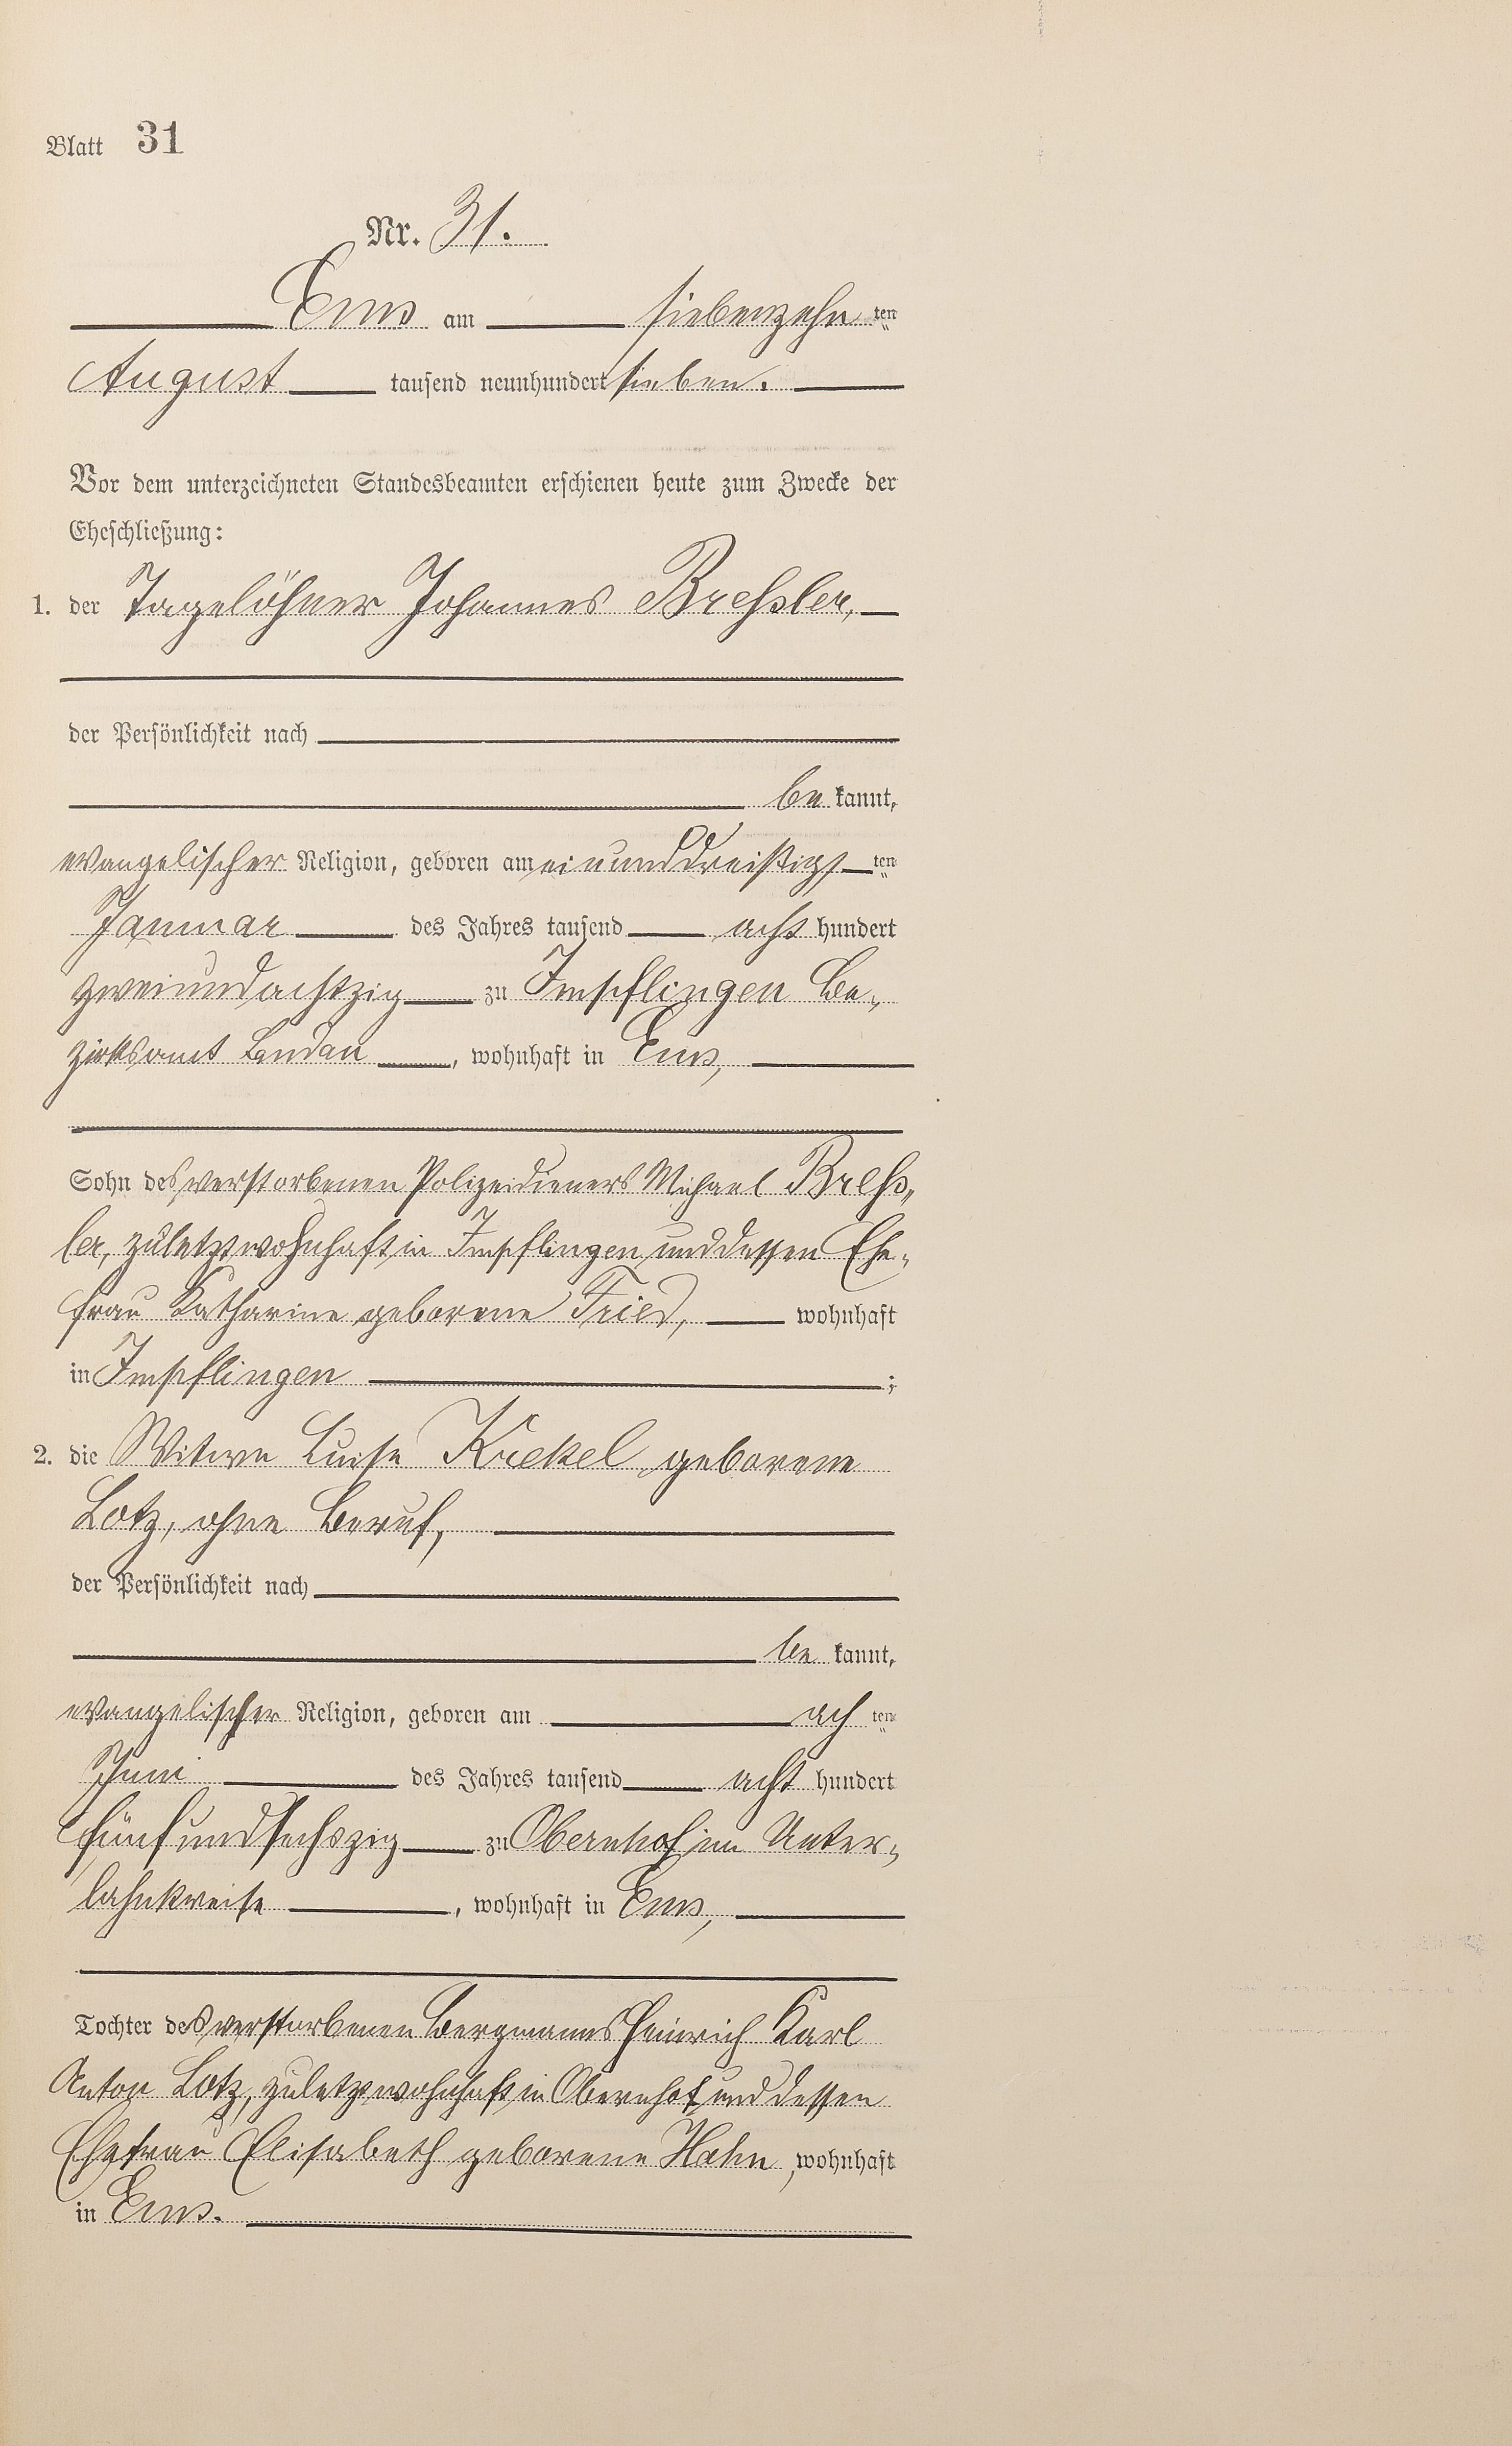 Blatt 31
Nr. 31.
Ems am siebenzehn ten
August tausend neunhundert sieben.
Vor dem unterzeichneten Standesbeamten erschienen heute zum Zwecke der
Eheschließung:
1. der Tagelöhner Johannes Breßler,
der Persönlichkeit nach
be kannt,
evangelischer Religion, geboren am einunddreißigs ten
Januar des Jahres tausend acht hundert
zweiundachtzig zu Impflingen Be-
zirksamt Landau, wohnhaft in Ems,
Sohn des verstorbenen Polizeidieners Michael Breß-
ler, zuletzt wohnhaft in Impflingen und dessen Ehe-
frau Katharine geborene Fried, wohnhaft
in Impflingen ;
2. die Witwe Luise Krekel geborene
Lotz, ohne Beruf,
der Persönlichkeit nach
be kannt,
evangelischer Religion, geboren am ach ten
Juni des Jahres tausend acht hundert
fünfundsechszig zu Obernhof im Unter-
lahnkreise, wohnhaft in Ems,
Tochter des verstorbenen Bergmanns Heinrich Karl
Anton Lotz, zuletzt wohnhaft in Obernhof und dessen
Ehefrau Elisabeth geborene Hahn, wohnhaft
in Ems.